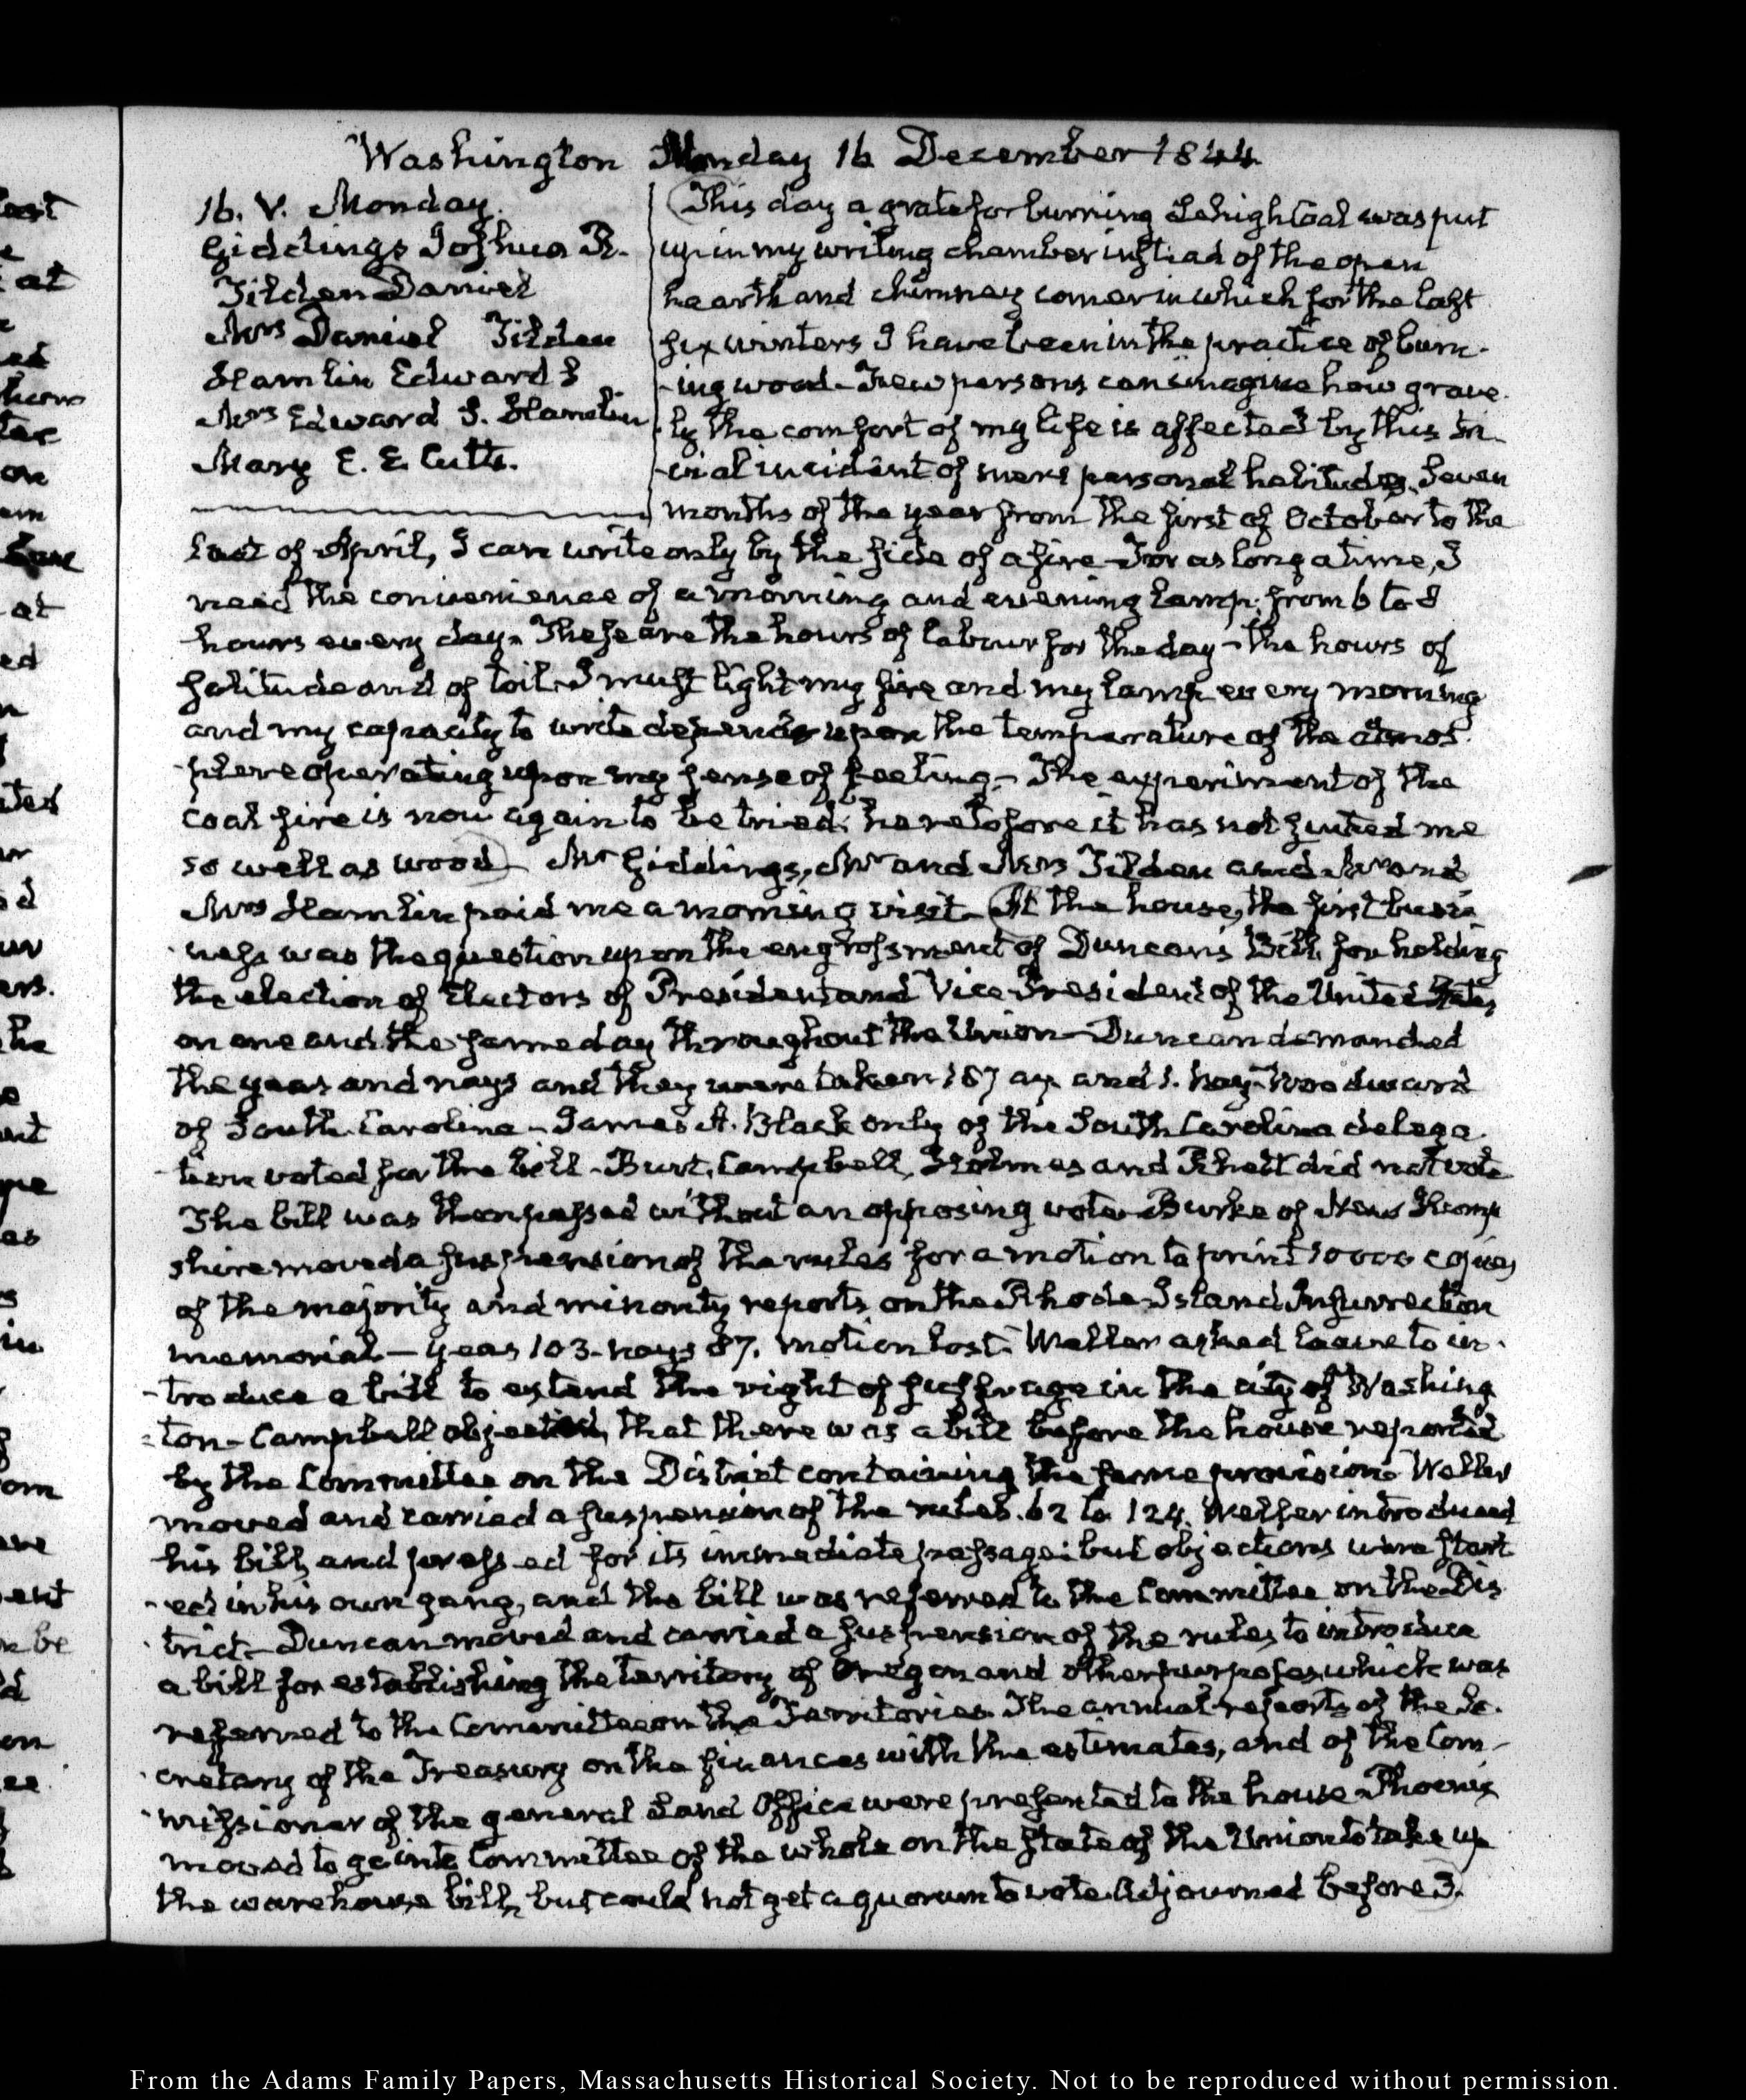 Washington Monday 16 December 1844
16. V. Monday.
Giddings Joshua R.
Tilden Daniel
Mrs Daniel Tilden
Hamlin Edward S
Mrs Edward S. Hamlin
Mary E. E. Cutts.
This day a grate for burning Lehigh Coal was put
up in my writing chamber instead of the open
hearth and chimney corner in which for the last
six winters I have been in the practice of burn-
-ing wood - Few persons can imagine how grave-
-ly the comfort of my life is affected by this tri-
-vial incident of mere personal habitudes. Seven
months of the year from the first of October to the
last of April, I can write only by the side of a fire - For as long a time, I
need the convenience of a morning and evening lamp; from 6 to 8
hours every day. These are the hours of labour for the day - the hours of
solitude and of toil. I must light my fire and my lamp every morning
and my capacity to write depends upon the temperature of the atmos-
-phere operating upon my sense of feeling - The experiment of the
coal fire is now again to be tried: heretofore it has not suited me
so well as wood - Mr Giddings, Mr and Mrs Tilden and Mr and
Mrs Hamlin paid me a morning visit. At the house, the first busi-
-ness was the question upon the engrossment of Duncan's Bill for holding
the election of Electors of President and Vice-President of the United States
on one and the same day throughout the Union - Duncan demanded
the yeas and nays and they were taken 187 ay. and 1. nay - Woodward
of South Carolina - James A. Black only of the South Carolina delega-
-tion voted for the bill - Burt, Campbell, Holmes and Rhett did not vote
The bill was then passed without an opposing vote - Burke of New Hamp
shire moved a suspension of the rules for a motion to print 10000 copies
of the majority and minority reports on the Rhode-Island Insurrection
memorial - yeas 103 - nays 87. motion lost. Weller asked leave to in-
-troduce a bill to extend the right of suffrage in the city of Washing
-ton - Campbell objected, that there was a bill before the house reported
by the Committee on the District containing the same provision. Weller
moved and carried a suspension of the rules. 62 to 124. Weller introduced
his bill, and pressed for its immediate passage: but objections were start
-ed in his own gang, and the bill was referred to the Committee on the Dis
-trict - Duncan moved and carried a suspension of the rules to introduce
a bill for establishing the territory of Oregon and other purposes, which was
referred to the Committee on the Territories. The annual reports of the Se-
-cretary of the Treasury on the finances with the estimates, and of the Com-
-missioner of the general Land Office were presented to the house - Phoenix
moved to go into Committee of the whole on the State of the Union to take up
the warehouse bill, but could not get a quorum to vote. Adjourned before 3.
From the Adams Family Papers, Massachusetts Historical Society. Not to be reproduced without permission.